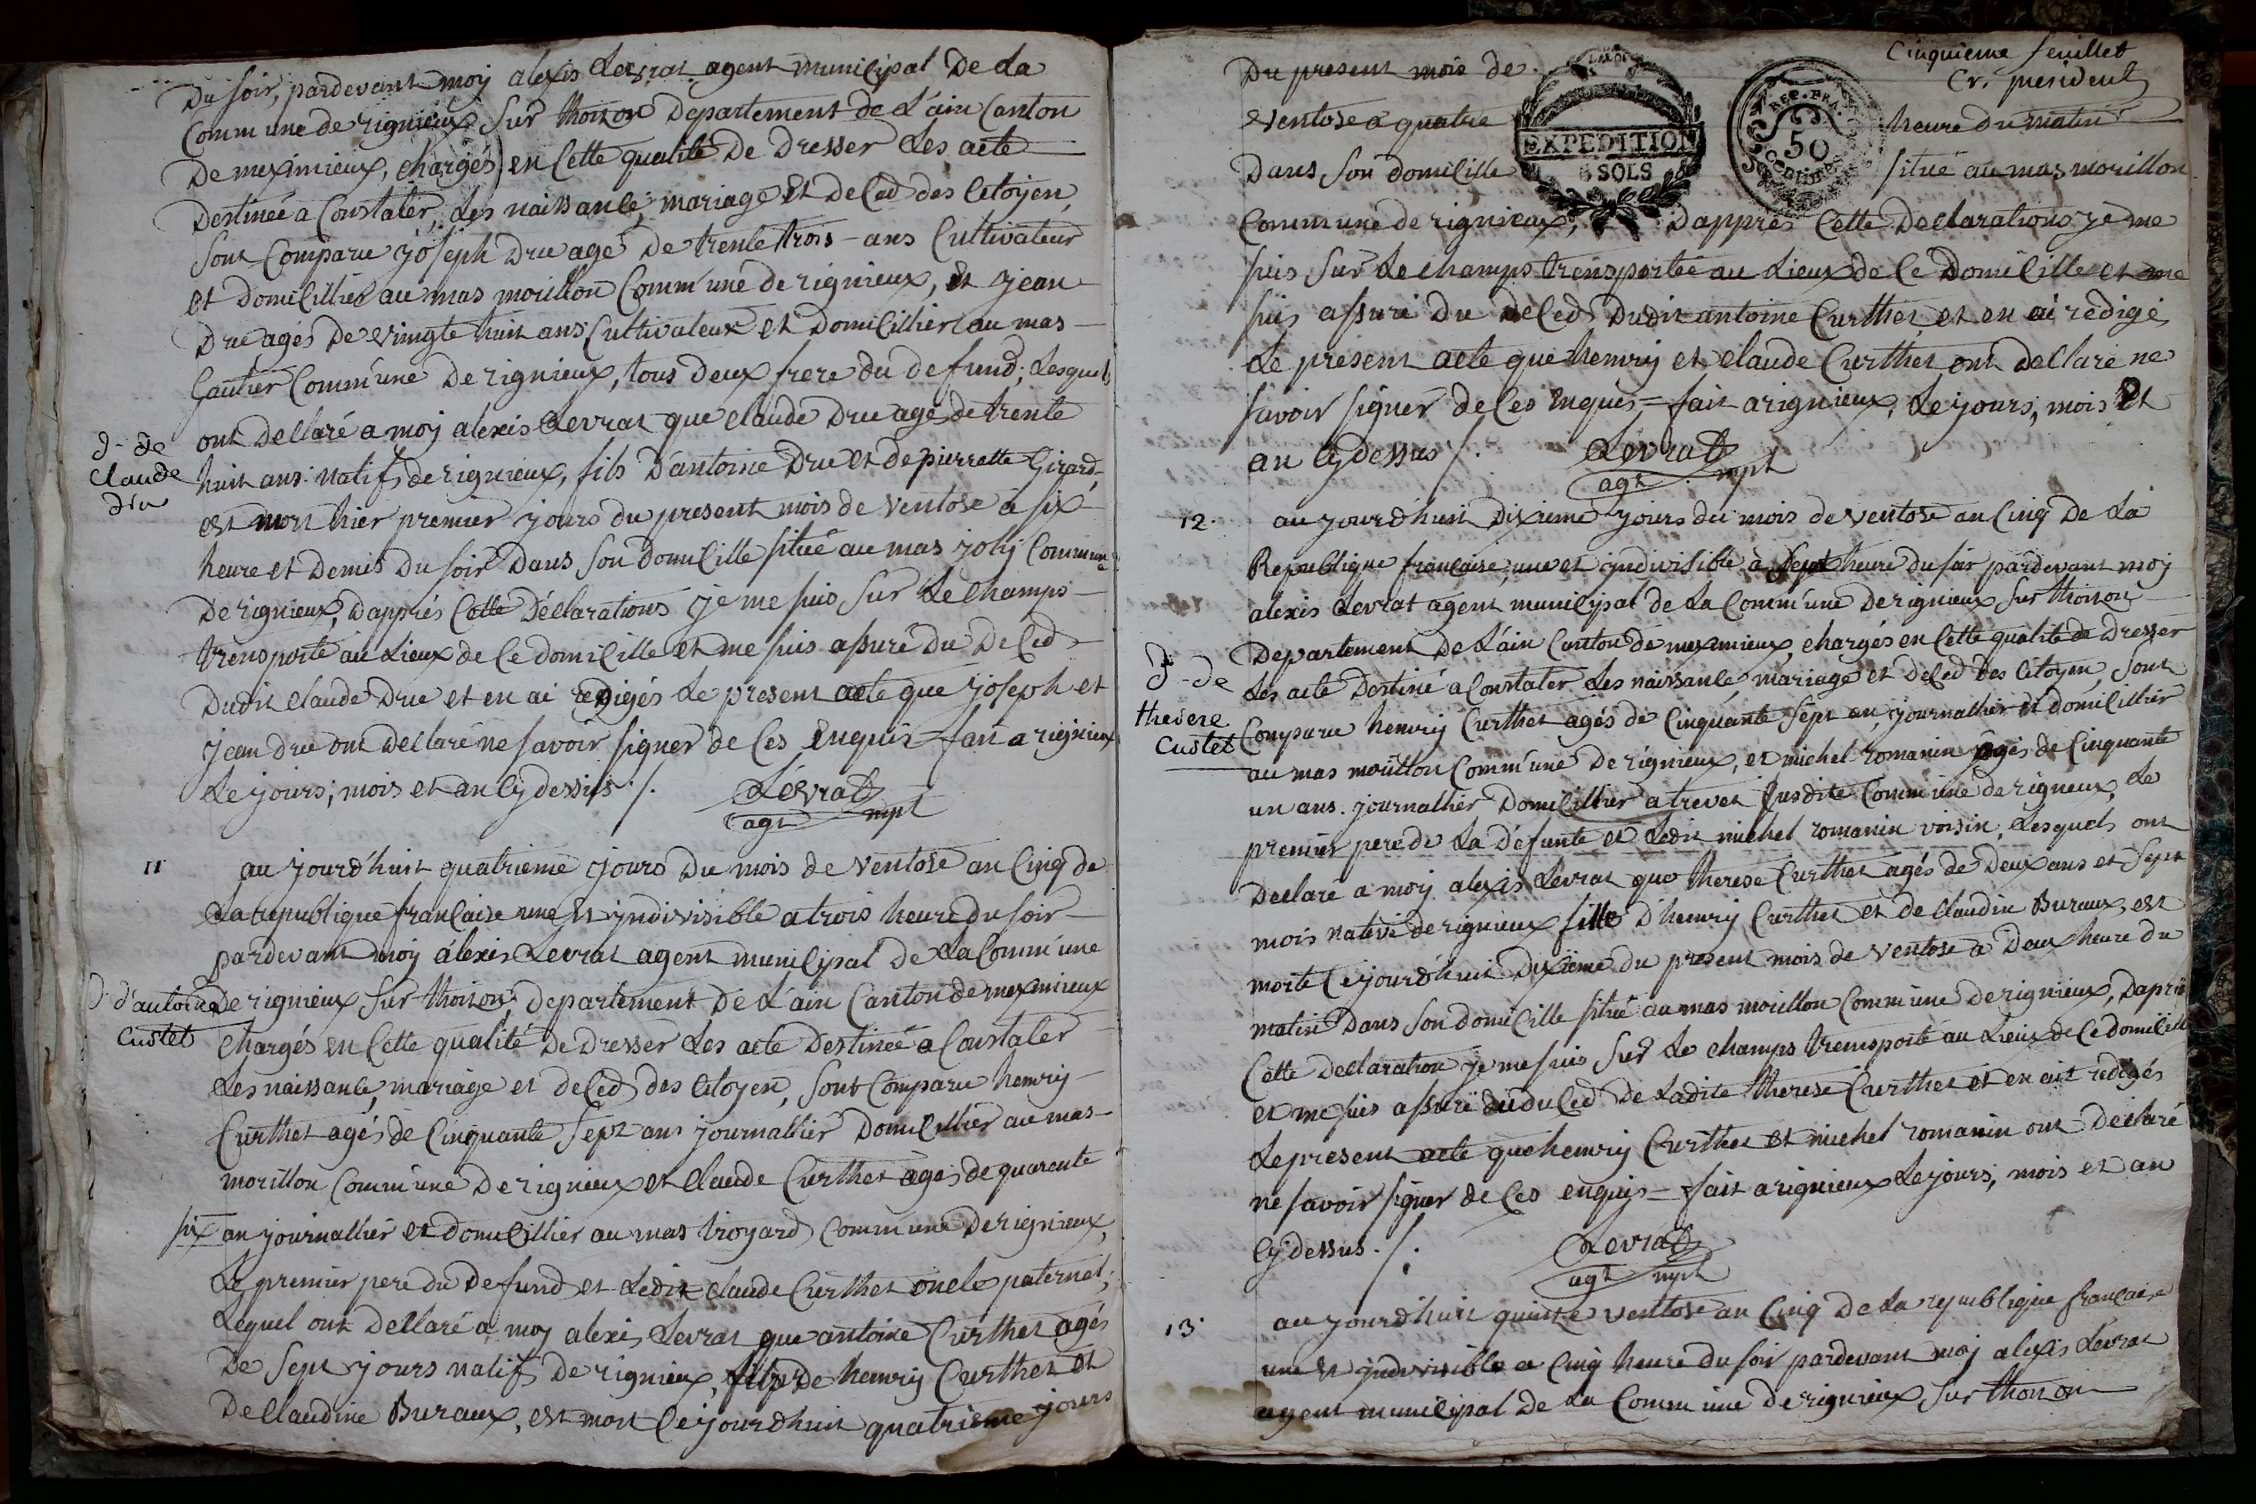 Du soir, pardevant moy alexis Levrat agent municipal De La
Commune de rignieux sur thoizon Departement de L'ain Canton
De meximieux, chargés en Cette qualité De Dresser Les acte
Destinée a Constater, Les naissance, mariage et Deced des Citoyen,
sont Comparu joseph Drue agé De trente trois ans Cultivateur
et Domicillier au mas morillon Comm'une de rignieux, et jean
Drue agés De vingte huit ans Cultivateur et Domicillier au mas
Gautier Comm'une De rignieux, tous Deux frere du defund, Lesquels
ont Dellaré a moy alexis Levrat que claude Drue agé de trente
D- De
Claude
Dru
huit ans natif de rignieux, fils D'antoine Drue et de pierrette Girard,
est mort hier premier jours du present mois de ventose à six
heure et Demis Du soir Dans son Domicille situé au mas joly Commune
De rignieux, Dapprés Cette Déclarations je me suis sur Le Champs
trensporté au Lieux de Ce domicille et me suis assuré du Deced
Dudit Claude Drue et en ai redigés Le present acte que joseph et
jean drue ont Dellaré ne savoir signer de Ces Enquis = fait a rignieux
Le jours, mois et an Cy dessus ./.
Levrat
agt mpt
11
au jourd'huit quatrieme jours Du mois de ventose an Cinq de
La republique françaisse une et jndivisible a trois heure du soir
pardevant moy álexis Levrat agent municipal de La Comm'une
D. d'antoine
Custet
De rignieux sur thoizon, departement De L'ain Canton de meximieux
Chargés en Cette qualité De Dresser Les acte Destinée a Constater
Les naissance, mariage et deced des Citoyen, sont Comparu henrry
Curthet agés de Cinquante sept ans journallier Domicillier au mas
morillon Comm'une De rignieux et Claude Curthet agés de quarente
six an journallier et domicillier au mas troyard Commune De rignieux,
Le premier pere du Defund et Ledit claude Curthet oncle paternel,
Lequel ont Dellaré a moy alexis Levrat que antoine Curthet agés
De sept jours natif De rignieux, fils de henrry Curthet et
De Claudine Buraux, est mort Ce jourd'huit quatrieme jours
Cinquieme feuillet
Cr. president
Du present mois de
ventose a quatre heure du matin
EXPEDITION
SOLS
REP. FRA.
50
CENTIMES
Dans son domicille situé au mas morillon
Commune de rignieux, Dapprés Cette Declarations je me
suis sur Le champs trensportée au Lieux de Ce Domicille et me
suis assuré Du Deced Dudit antoine Curthet et en ai rédigé
Le présent acte que henrry et claude Curthet ont Dellaré ne
savoir signer de Ces Enquis = fait a rignieux, Le jours, mois Et
an Cy dessus ./.
Levrat
agt mpt
12.
au jourd'huit Dixieme jours du mois de ventose an Cinq De La
Republique françaisse, une et jndivisible à sept heure du soir pardevant moy
alexis Levrat agent municipal de La Comm'une De rignieux sur thoizon
Departement De L'ain Canton de meximieux, chargés en Cette qualité de Dresser
D - De
therese
Custet
Les acte Destiné a Constater Les naissance, mariage et deced des Citoyen, sont
Comparu henrry Curthet agés de Cinquante sept an, journallier et domicillier
au mas morillon Comm'une De rignieux, et michel romanin agés de Cinquante
un ans journallier Domicillier a trevet susdite Comm'une de rignieux, Le
premier pere de La défunte et Ledit michel romanin voisin, Lesquels ont
Declaré a moy alexis Levrat que therese Curthet agés de Deux ans et sept
mois native de rignieux fille D'henrry Curthet et de Claudine Buraux, est
morte Ce jourd'huit Dixieme du present mois de ventose a Deux heure du
matin Dans son domicille situé au mas morillon Comm'une De rignieux, Daprés
Cette declaration je me suis sur Le champs trensporté au Lieux de Ce domicille
et me suis assuré du duced de Ladite therese Curthet et en ait redigés
Le present acte que henrry Curthet et michel romanin ont Déclaré
ne savoir signer de Ces enquis = fait a rignieux Le jours, mois et an
Cy dessus ./.
Levrat
agt mpt
13.
au jourd'huit quinze ventose an Cinq De La republique française
une et jndivisible a Cinq heure du soir pardevant moy alexis Levrat
agent municipal De La Comm'une De rignieux sur thoizon